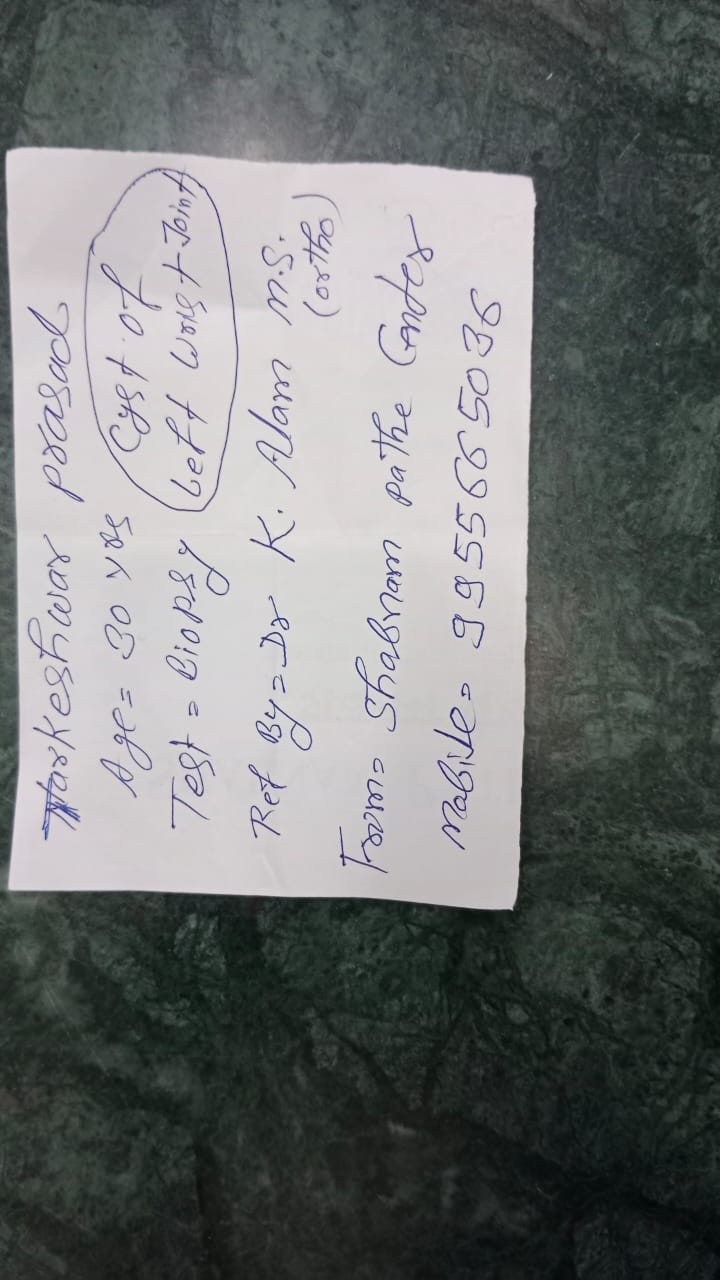 Tarkeshwar prasad
Age = 30 yrs
Cyst of
Left Wrist Joint
Test = Biopsy
Ref By = Dr K. Alam M.S.
(ortho)
From = Shabnam pathe Center
Mobile = 9955665036